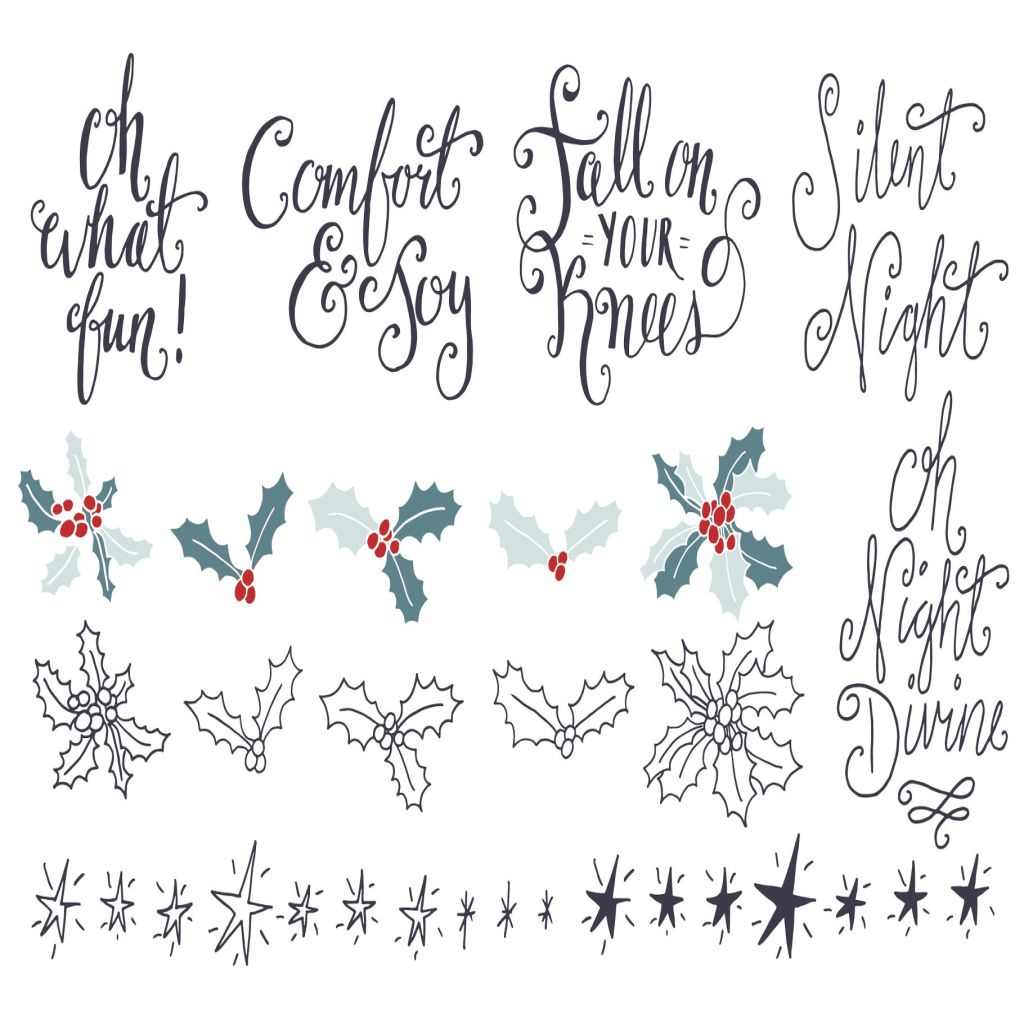 Oh
what
fun!
Comfort
& Joy
Fall on
=YOUR=
Knees
Silent
Night
Oh
Night
Divine